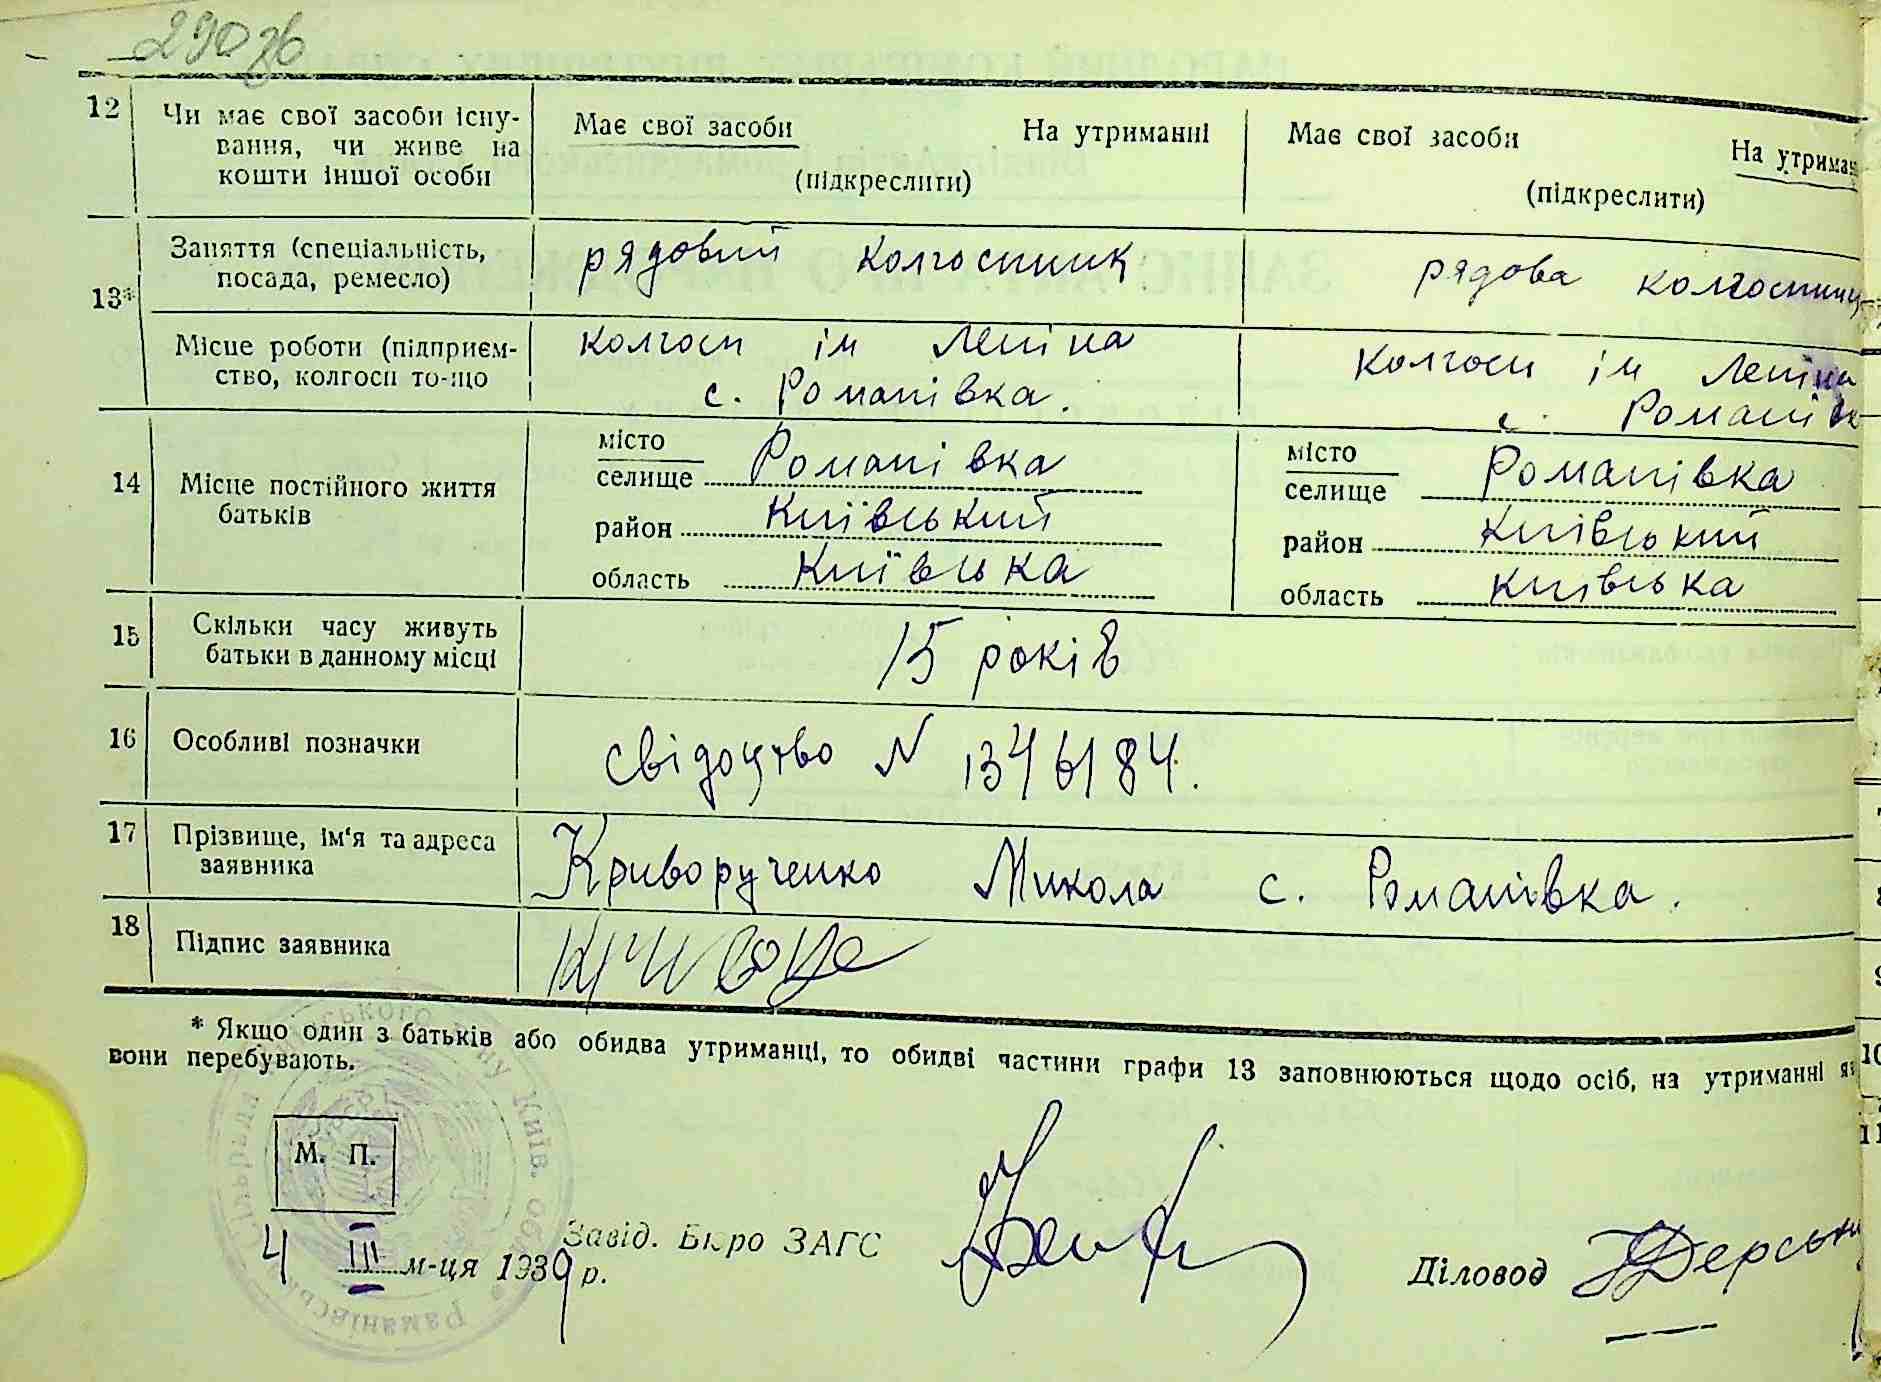 290 зв
12 Чи має свої засоби існу-
вання, чи живе на
кошти іншої особи
Має свої засоби На утриманні
(підкреслити)
Має свої засоби На утриман
(підкреслити)
13*
Заняття (спеціальність,
посада, ремесло)
рядовий колгоспник
рядова колгоспниц
Місце роботи (підприєм-
ство, колгосп то-що
колгосп ім Леніна
с. Романівка.
колгосп ім Леніна
с. Романівк
14 Місце постійного життя
батьків
місто
селище Романівка
район Київський
область Київська
місто
селище Романівка
район Київський
область Київська
15 Скільки часу живуть
батьки в данному місці
15 років
16 Особливі позначки
свідоцтво N 1346184.
17 Прізвище, ім'я та адреса
заявника
Криворученко Микола с. Романівка.
18 Підпис заявника
* Якщо один з батьків або обидва утриманці, то обидві частини графи 13 заповнюються щодо осіб, на утриманні як
вони перебувають.
М. П.
4 III м-ця 1939 р.
Завід. Бюро ЗАГС
Діловод